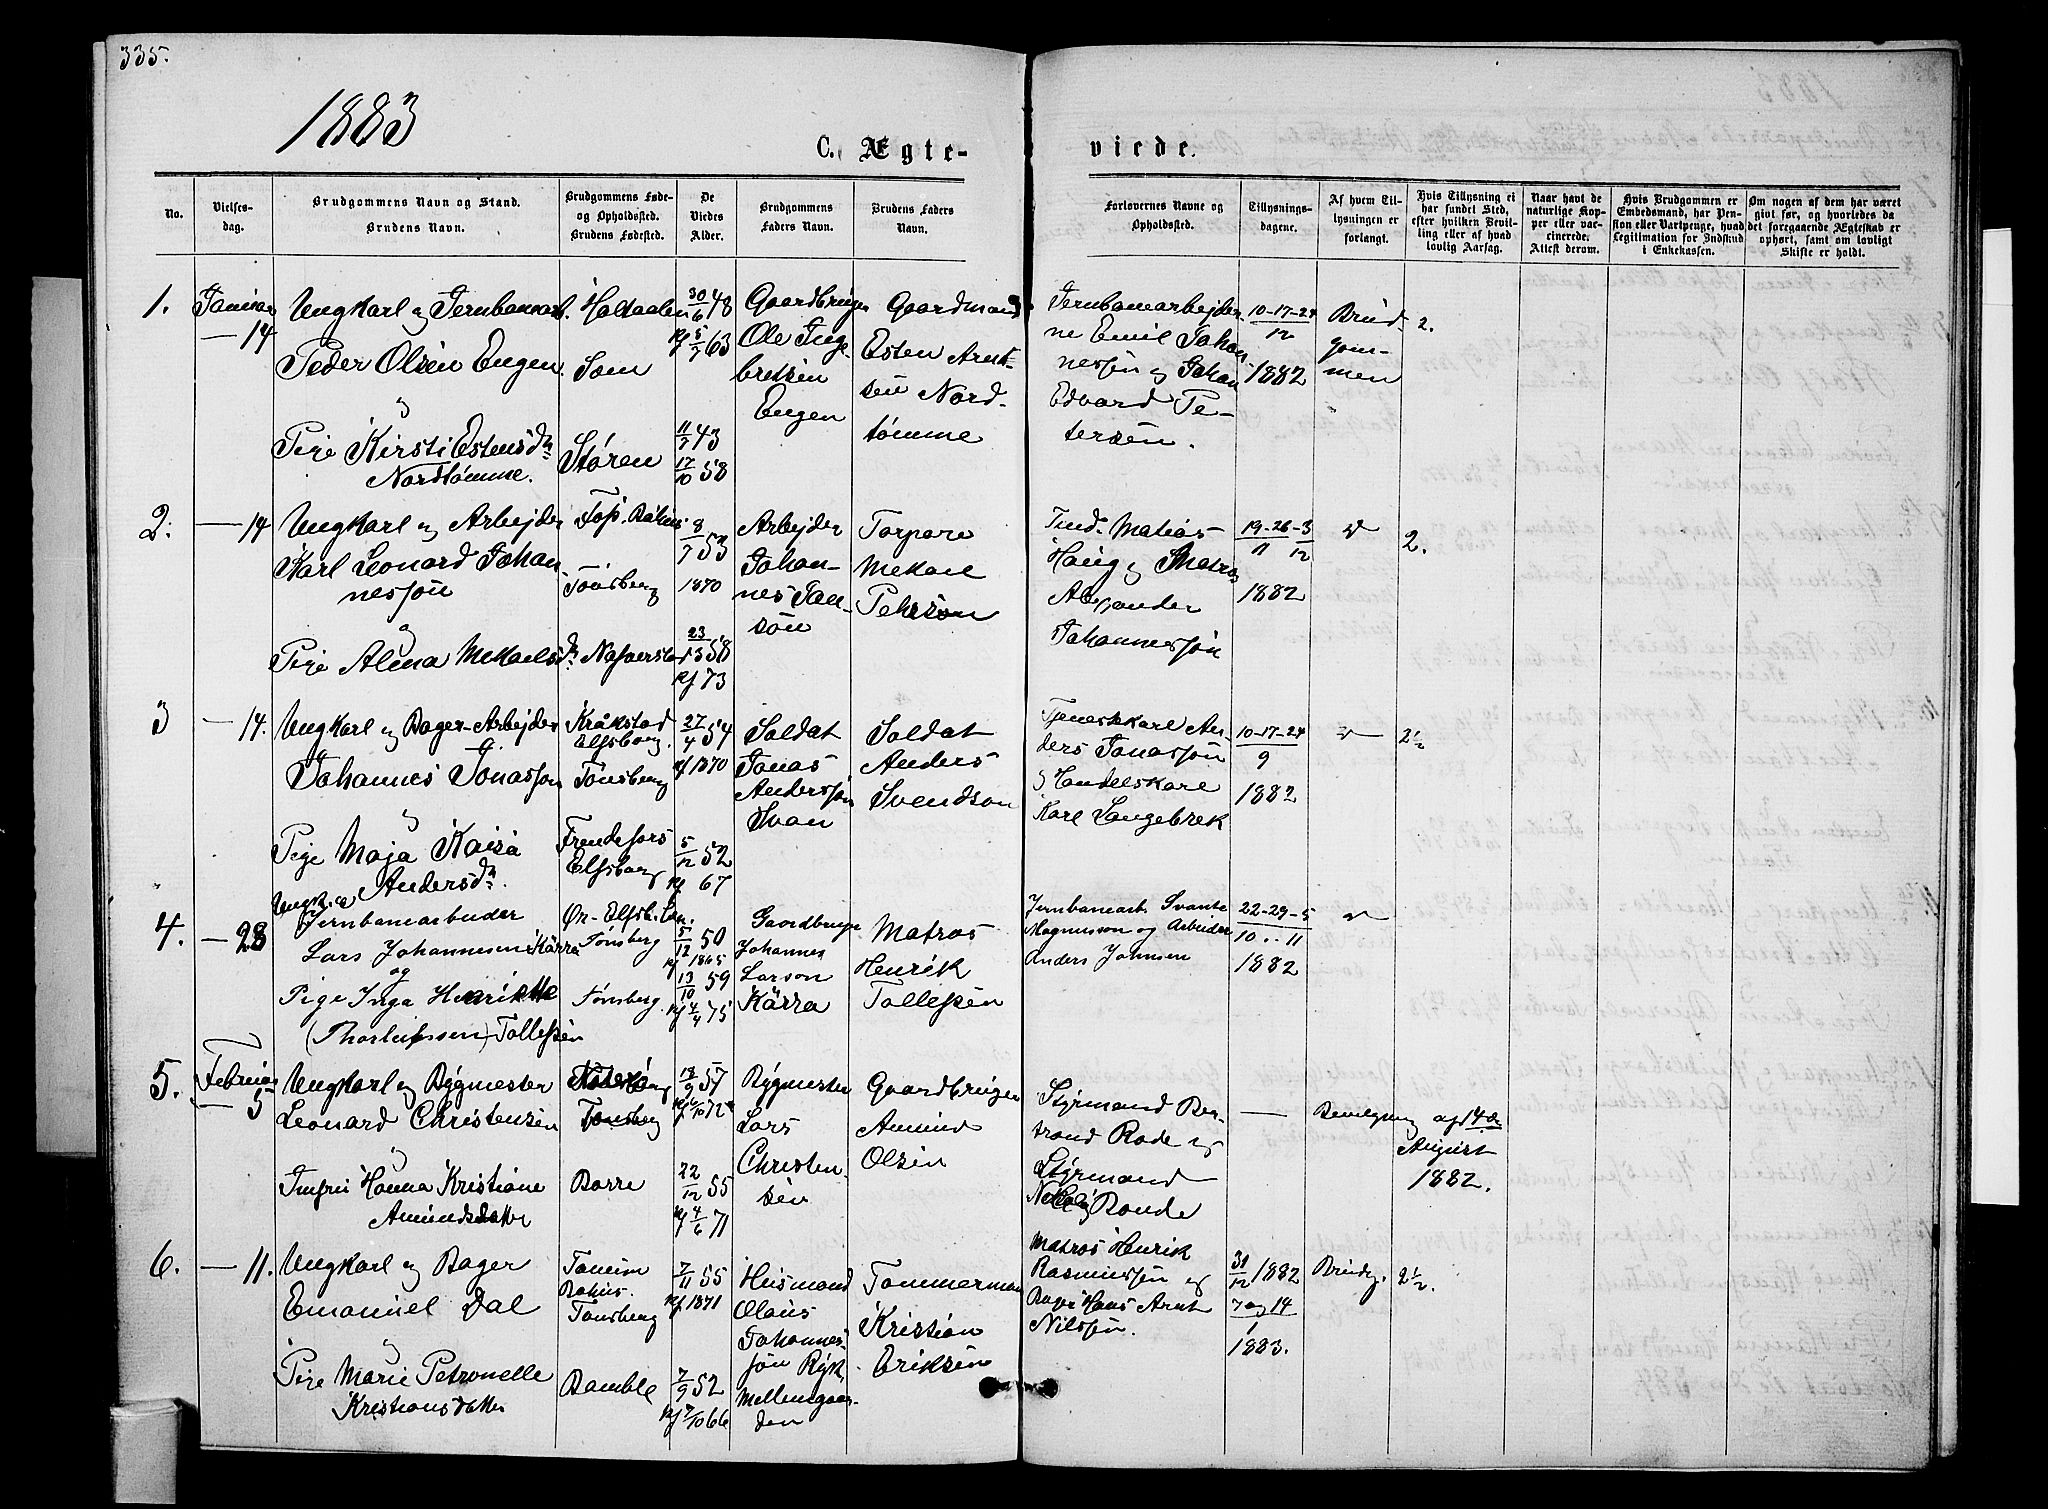 335.
1883
C. Ægte-
viede.
No.
Vielses-
dag.
Brudgommens Navn og Stand.
Brudens Navn.
Brudgommens Føde-
og Opholdssted.
Brudens Fødested.
De
Viedes
Alder.
Brudgommens
Faders Navn.
Brudens Faders
Navn.
Forlovernes Navne og
Opholdssted.
Tillysnings-
dagene.
Af hvem Til-
lysningen er
forlangt.
Hvis Tillysning ei
har fundet Sted,
efter hvilken Bevil-
ling eller af hvad
lovlig Aarsag.
Naar havt de
naturlige Kop-
per eller vac-
cinerede.
Attest derom.
Hvis Brudgommen er
Embedsmand, har Pen-
sion eller Vartpenge, hvad
Legitimation for Indskud
i Enkekassen.
Om nogen af dem har været
gift før, og hvorledes da
det foregaaende Ægteskab er
ophørt, samt om lovligt
Skifte er holdt.
1.
Januar
— 14
Ungkarl og Jernbanearb.
Peder Olsen Engen
og
Pige Kirsti Estensdr
Nordtømme.
Holtaalen
Sem
Støren
30/6 48
Kf 5/7 63
11/7 43
17/10 58
Gaardbruger
Ole Inge-
bretsen
Engen
Gaardmand
Esten Arnt-
sen Nord-
tømme
Jernbanearbejder-
ne Emil Johan-
nessøn og Johan
Edvard Pe-
tersen.
10-17-24
12
1882
Brud-
gom-
men
2.
2.
— 14
Ungkarl og Arbejder
Karl Leonard Johan
nessøn
og
Pige Alma Mekaels dr
Båhus
Tønsberg
8/7 53
1870
23
58
Kf 73
Arbejder
Johan-
nes Jan-
søn
Torpare
Mekael
Pehrson
Matias
Haug og Matros
Alexander
Johannessøn
19-26-3
11 12
1882
2.
3
— 14.
Ungkarl og Bager-Arbejder
Johannes Jonassøn
og
Pige Maja Kaisa
Andersdr.
Kråkstad
Elfsborg.
Tønsberg
Frendefors
Elfsborg
27/4 54
Kf 1870
5/12 52
Kf 67
Soldat
Jonas
Anderssøn
Svan
Soldat
Anders
Svendson
Tjenestekarl An-
ders Jonassøn
og Handelskarl
Karl Langebrek
10-17-24
9
1882
2 1/2
4.
— 28
Ungk. og
Jernbanearbeider
Lars Johannesen Kärra
og
Pige Inga Henrikke
(Thorleifssen) Tollefsen
Elfsb. Len.
Tønsberg
Tønsberg.
5/12 50
Kf 1865
13/10 59
Kf 4/4 75
Gaardbruger
Johannes
Larson
Kärra
Matros
Henrik
Tollefsen
Jernbanearb. Svante
Magnusson og Arbeider
Anders Johnsen
22-29-5
10 .. 11
1882
5.
Februar
— 5
Ungkarl og Bygmester
Leonard Christensen
og
Jomfru Hanna Kristiane
Amundsdatter
Tønsberg
Borre
18/9 57
Kf 6/10 72
22/12 55
Kf 4/6 71
Bygmester
Lars
Christen-
sen
Gaardbruger
Amund
Olsen
Styrmand Ber-
trand Rode og
Styrmand
Ronde
—
Bevilgning af 14de
August
1882.
6.
— 11.
Ungkarl og Bager
Emanuel Dal
og
Pige Marie Petronelle
Kristiansdatter
Tanum
Bahus.
Tønsberg
Bamble
7/11 55
Kf 1871
7/9 52
Kf 7/10 66
Husmand
Olaus
Johannes-
søn Ryk
Mellemgaar-
den
Tømmerman
Kristian
Eriksen
Matros Henrik
Rasmussøn og
Bager Hans Arnt
Nilssøn.
31/12 1882
7 og 14
1
1883.
Brudg.
2 1/2.